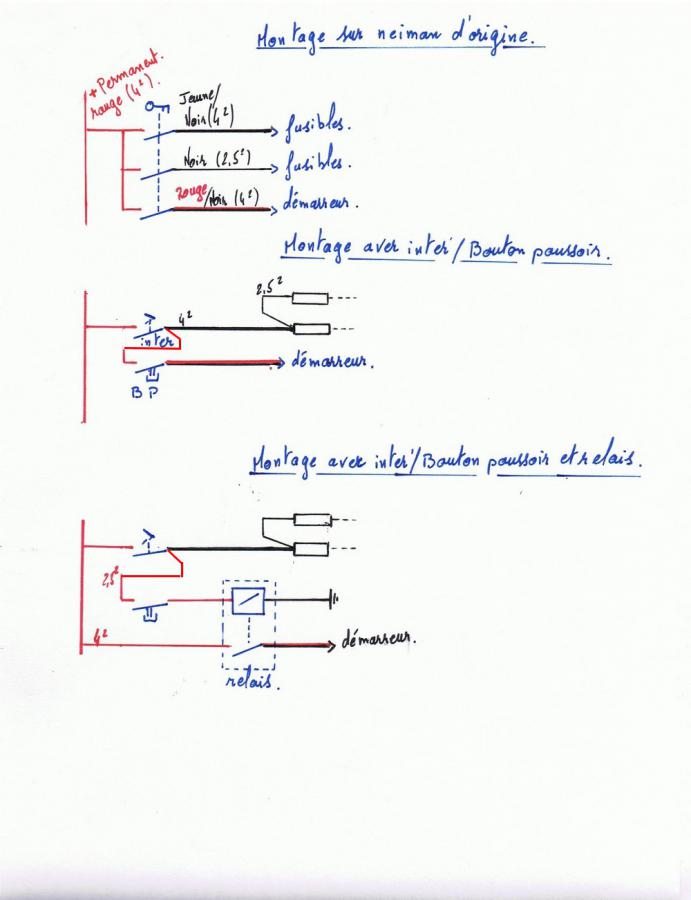 Montage sur neiman d'origine.
+ Permanent.
rouge (4²).
Jaune/
Noir (4²)
fusibles.
Noir (2,5²)
fusibles.
rouge/Noir (4²)
démarreur.
Montage aver inter/Bouton poussoir.
2,5²
4²
inter
démarreur.
B P
Montage avec inter/Bouton poussoir et relais.
2,5²
4²
démarreur.
relais.